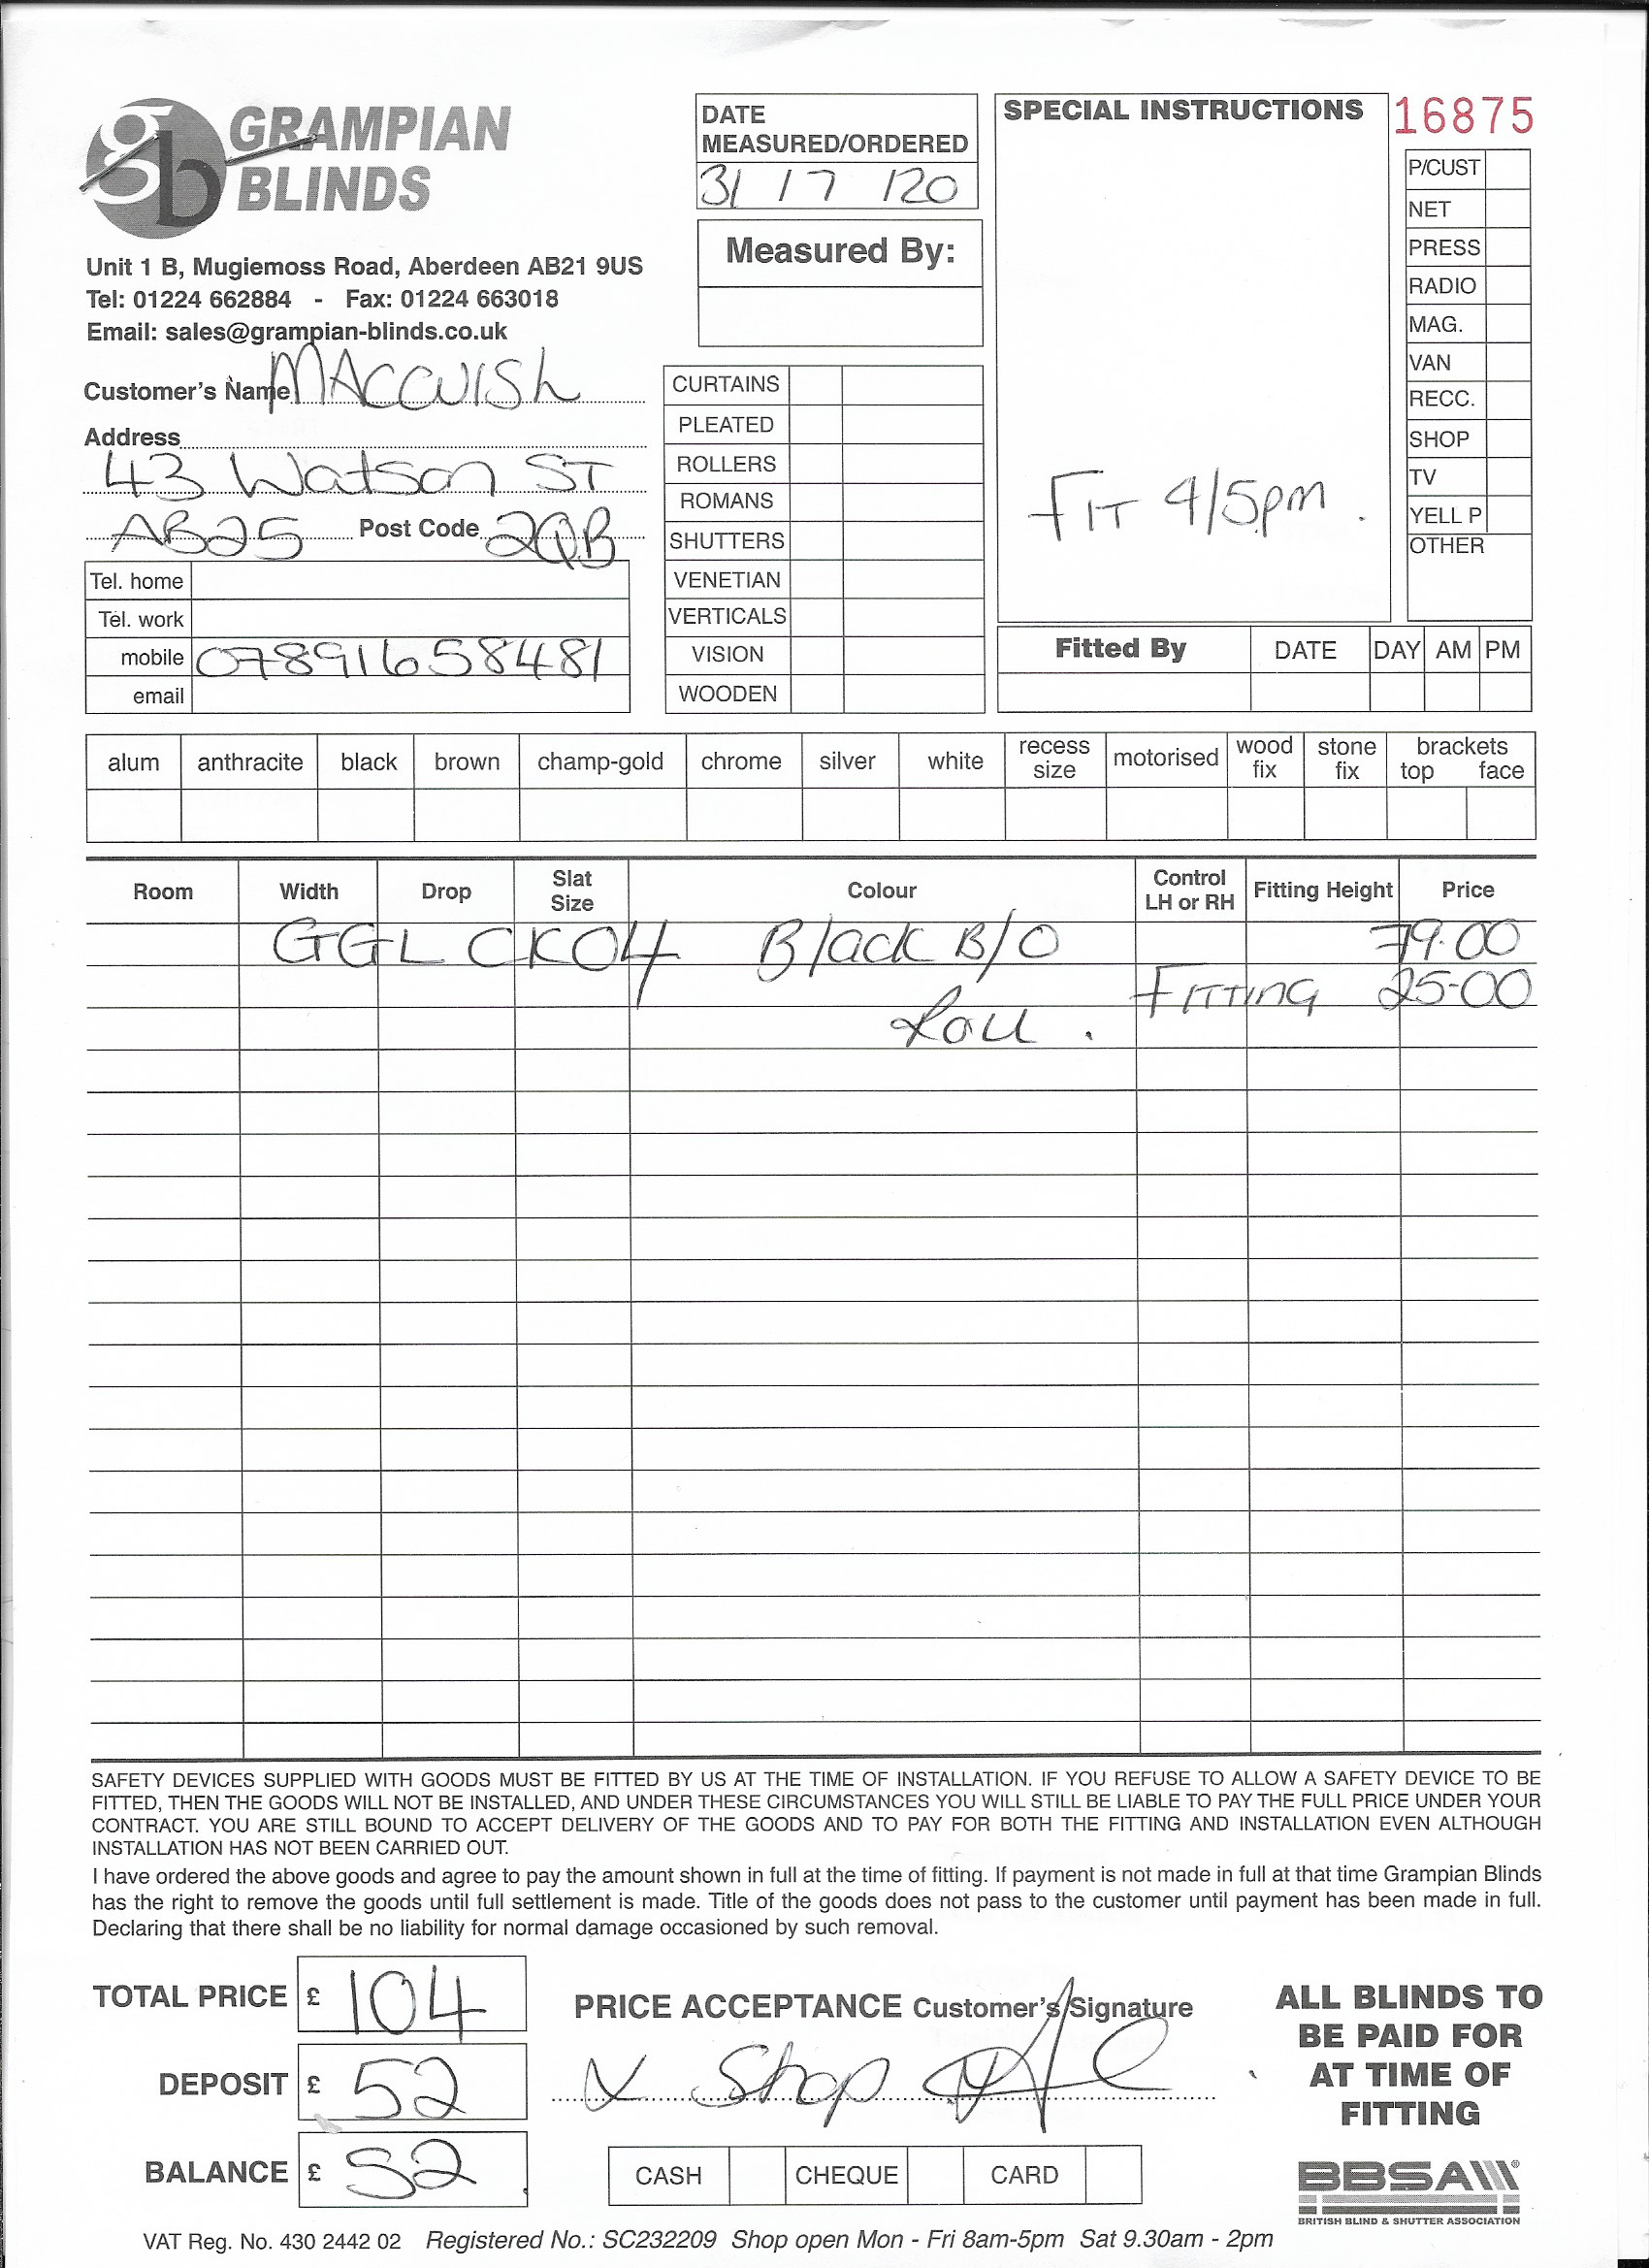 gb GRAMPIAN BLINDS
Unit 1 B, Mugiemoss Road, Aberdeen AB21 9US
Tel: 01224 662884 - Fax: 01224 663018
Email: sales@grampian-blinds.co.uk
Customer's Name MACCUISH
Address
43 Watson ST
AB25 Post Code 2QB
Tel. home
Tel. work
mobile 07891658481
email
DATE
MEASURED/ORDERED
31 / 7 / 20
Measured By:
CURTAINS
PLEATED
ROLLERS
ROMANS
SHUTTERS
VENETIAN
VERTICALS
VISION
WOODEN
SPECIAL INSTRUCTIONS
FIT 4/5pm.
16875
P/CUST
NET
PRESS
RADIO
MAG.
VAN
RECC.
SHOP
TV
YELL P
OTHER
Fitted By DATE DAY AM PM
alum anthracite black brown champ-gold chrome silver white recess size motorised wood fix stone fix brackets top face
Room Width Drop Slat Size Colour Control LH or RH Fitting Height Price
GGL CK04 Black B/O 79.00
FITTING 25-00
Roll.
SAFETY DEVICES SUPPLIED WITH GOODS MUST BE FITTED BY US AT THE TIME OF INSTALLATION. IF YOU REFUSE TO ALLOW A SAFETY DEVICE TO BE
FITTED, THEN THE GOODS WILL NOT BE INSTALLED, AND UNDER THESE CIRCUMSTANCES YOU WILL STILL BE LIABLE TO PAY THE FULL PRICE UNDER YOUR
CONTRACT. YOU ARE STILL BOUND TO ACCEPT DELIVERY OF THE GOODS AND TO PAY FOR BOTH THE FITTING AND INSTALLATION EVEN ALTHOUGH
INSTALLATION HAS NOT BEEN CARRIED OUT.
I have ordered the above goods and agree to pay the amount shown in full at the time of fitting. If payment is not made in full at that time Grampian Blinds
has the right to remove the goods until full settlement is made. Title of the goods does not pass to the customer until payment has been made in full.
Declaring that there shall be no liability for normal damage occasioned by such removal.
TOTAL PRICE £ 104
DEPOSIT £ 52
BALANCE £ 52
PRICE ACCEPTANCE Customer's Signature
x Shop
CASH CHEQUE CARD
ALL BLINDS TO
BE PAID FOR
AT TIME OF
FITTING
BBSA
BRITISH BLIND & SHUTTER ASSOCIATION
VAT Reg. No. 430 2442 02 Registered No.: SC232209 Shop open Mon - Fri 8am-5pm Sat 9.30am - 2pm